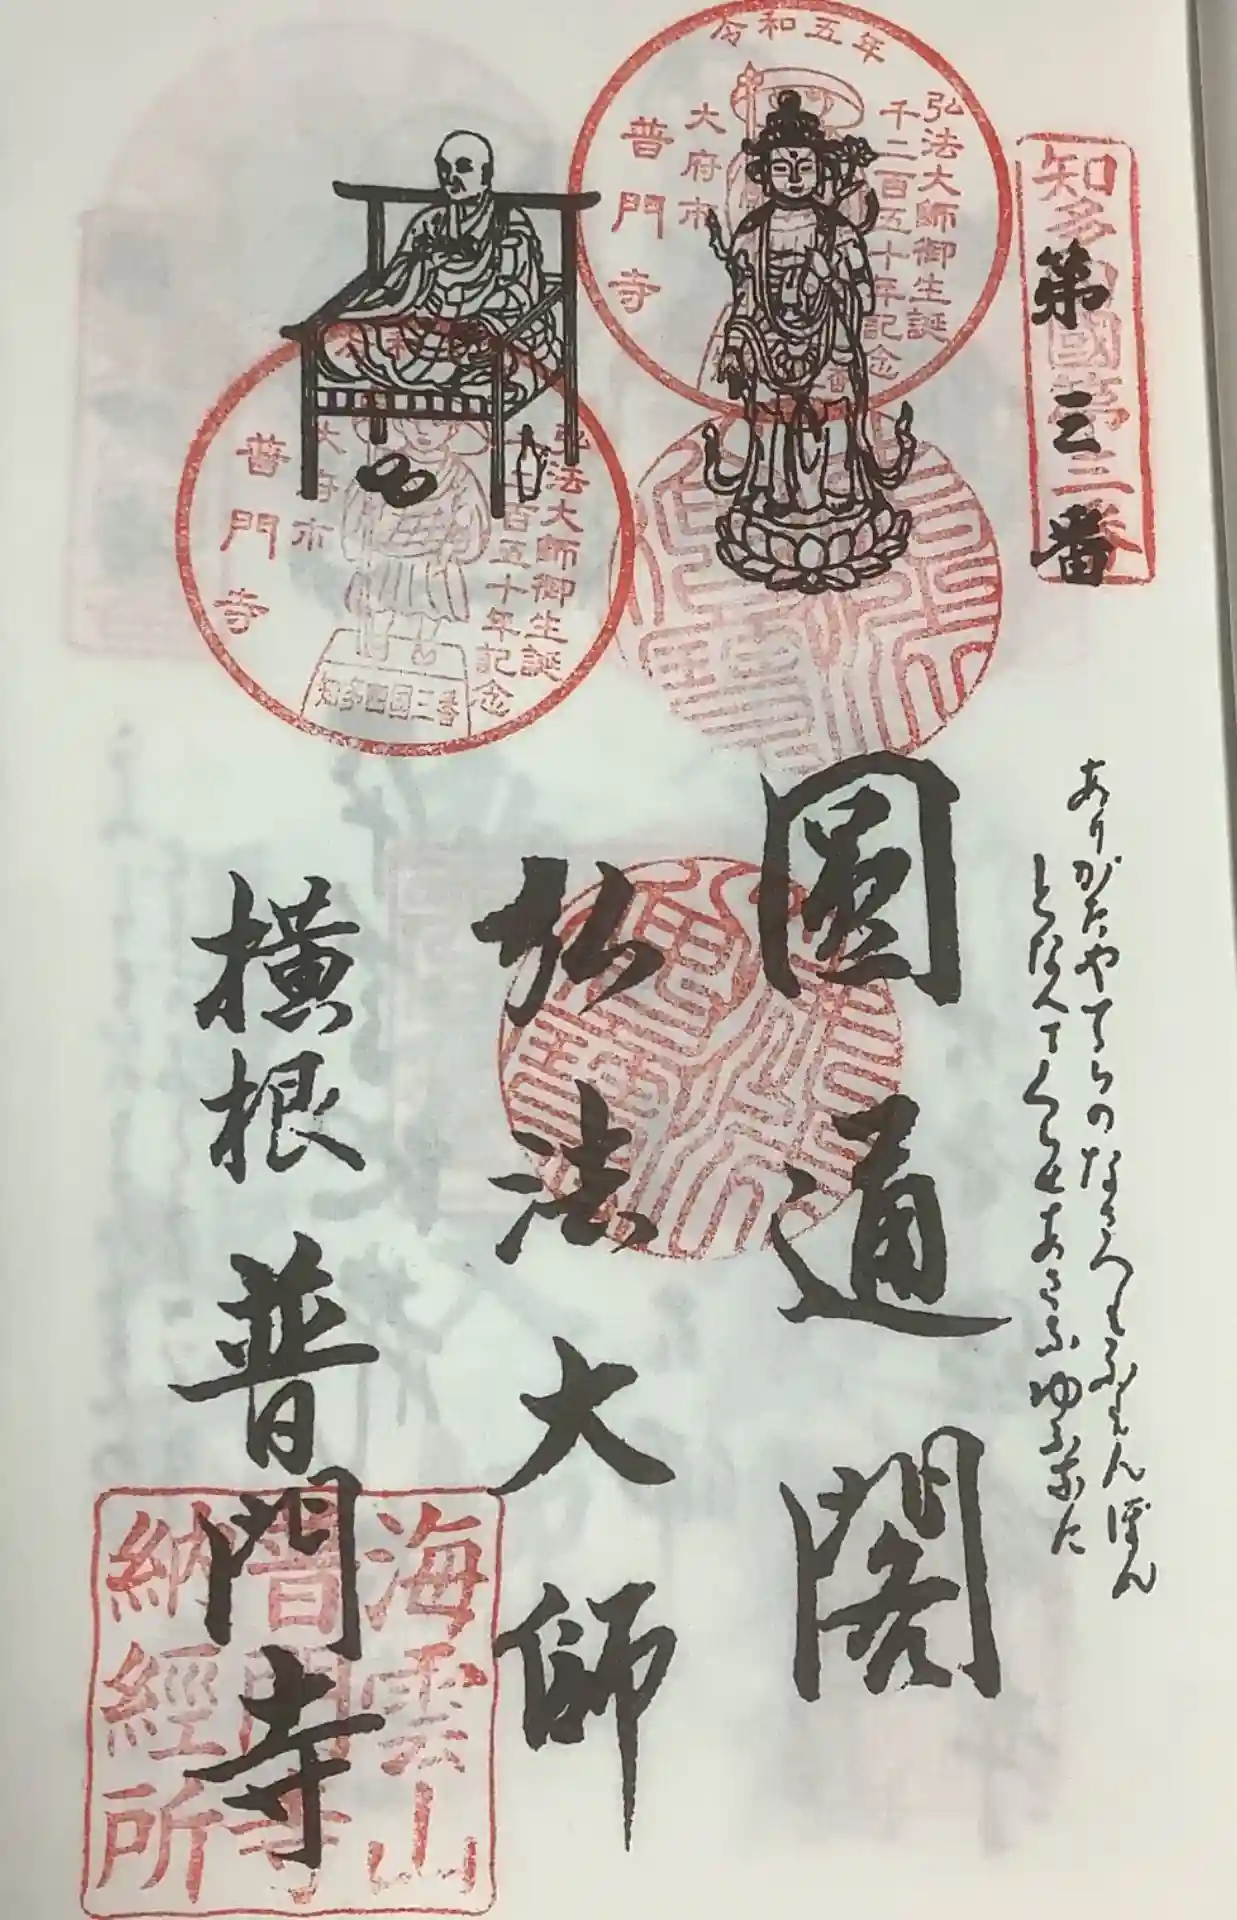 知多四國第三番
第三番
ありがたやてらのなさへもふもんぼん
となへてくらせあさふゆふなに
令和五年
弘法大師御生誕
千二百五十年記念
大府市
普門寺
圓通閣
弘法大師
弘法大師御生誕
千二百五十年記念
知多四国三番
大府市
普門寺
横根普門寺
海雲山
普門寺
納經所